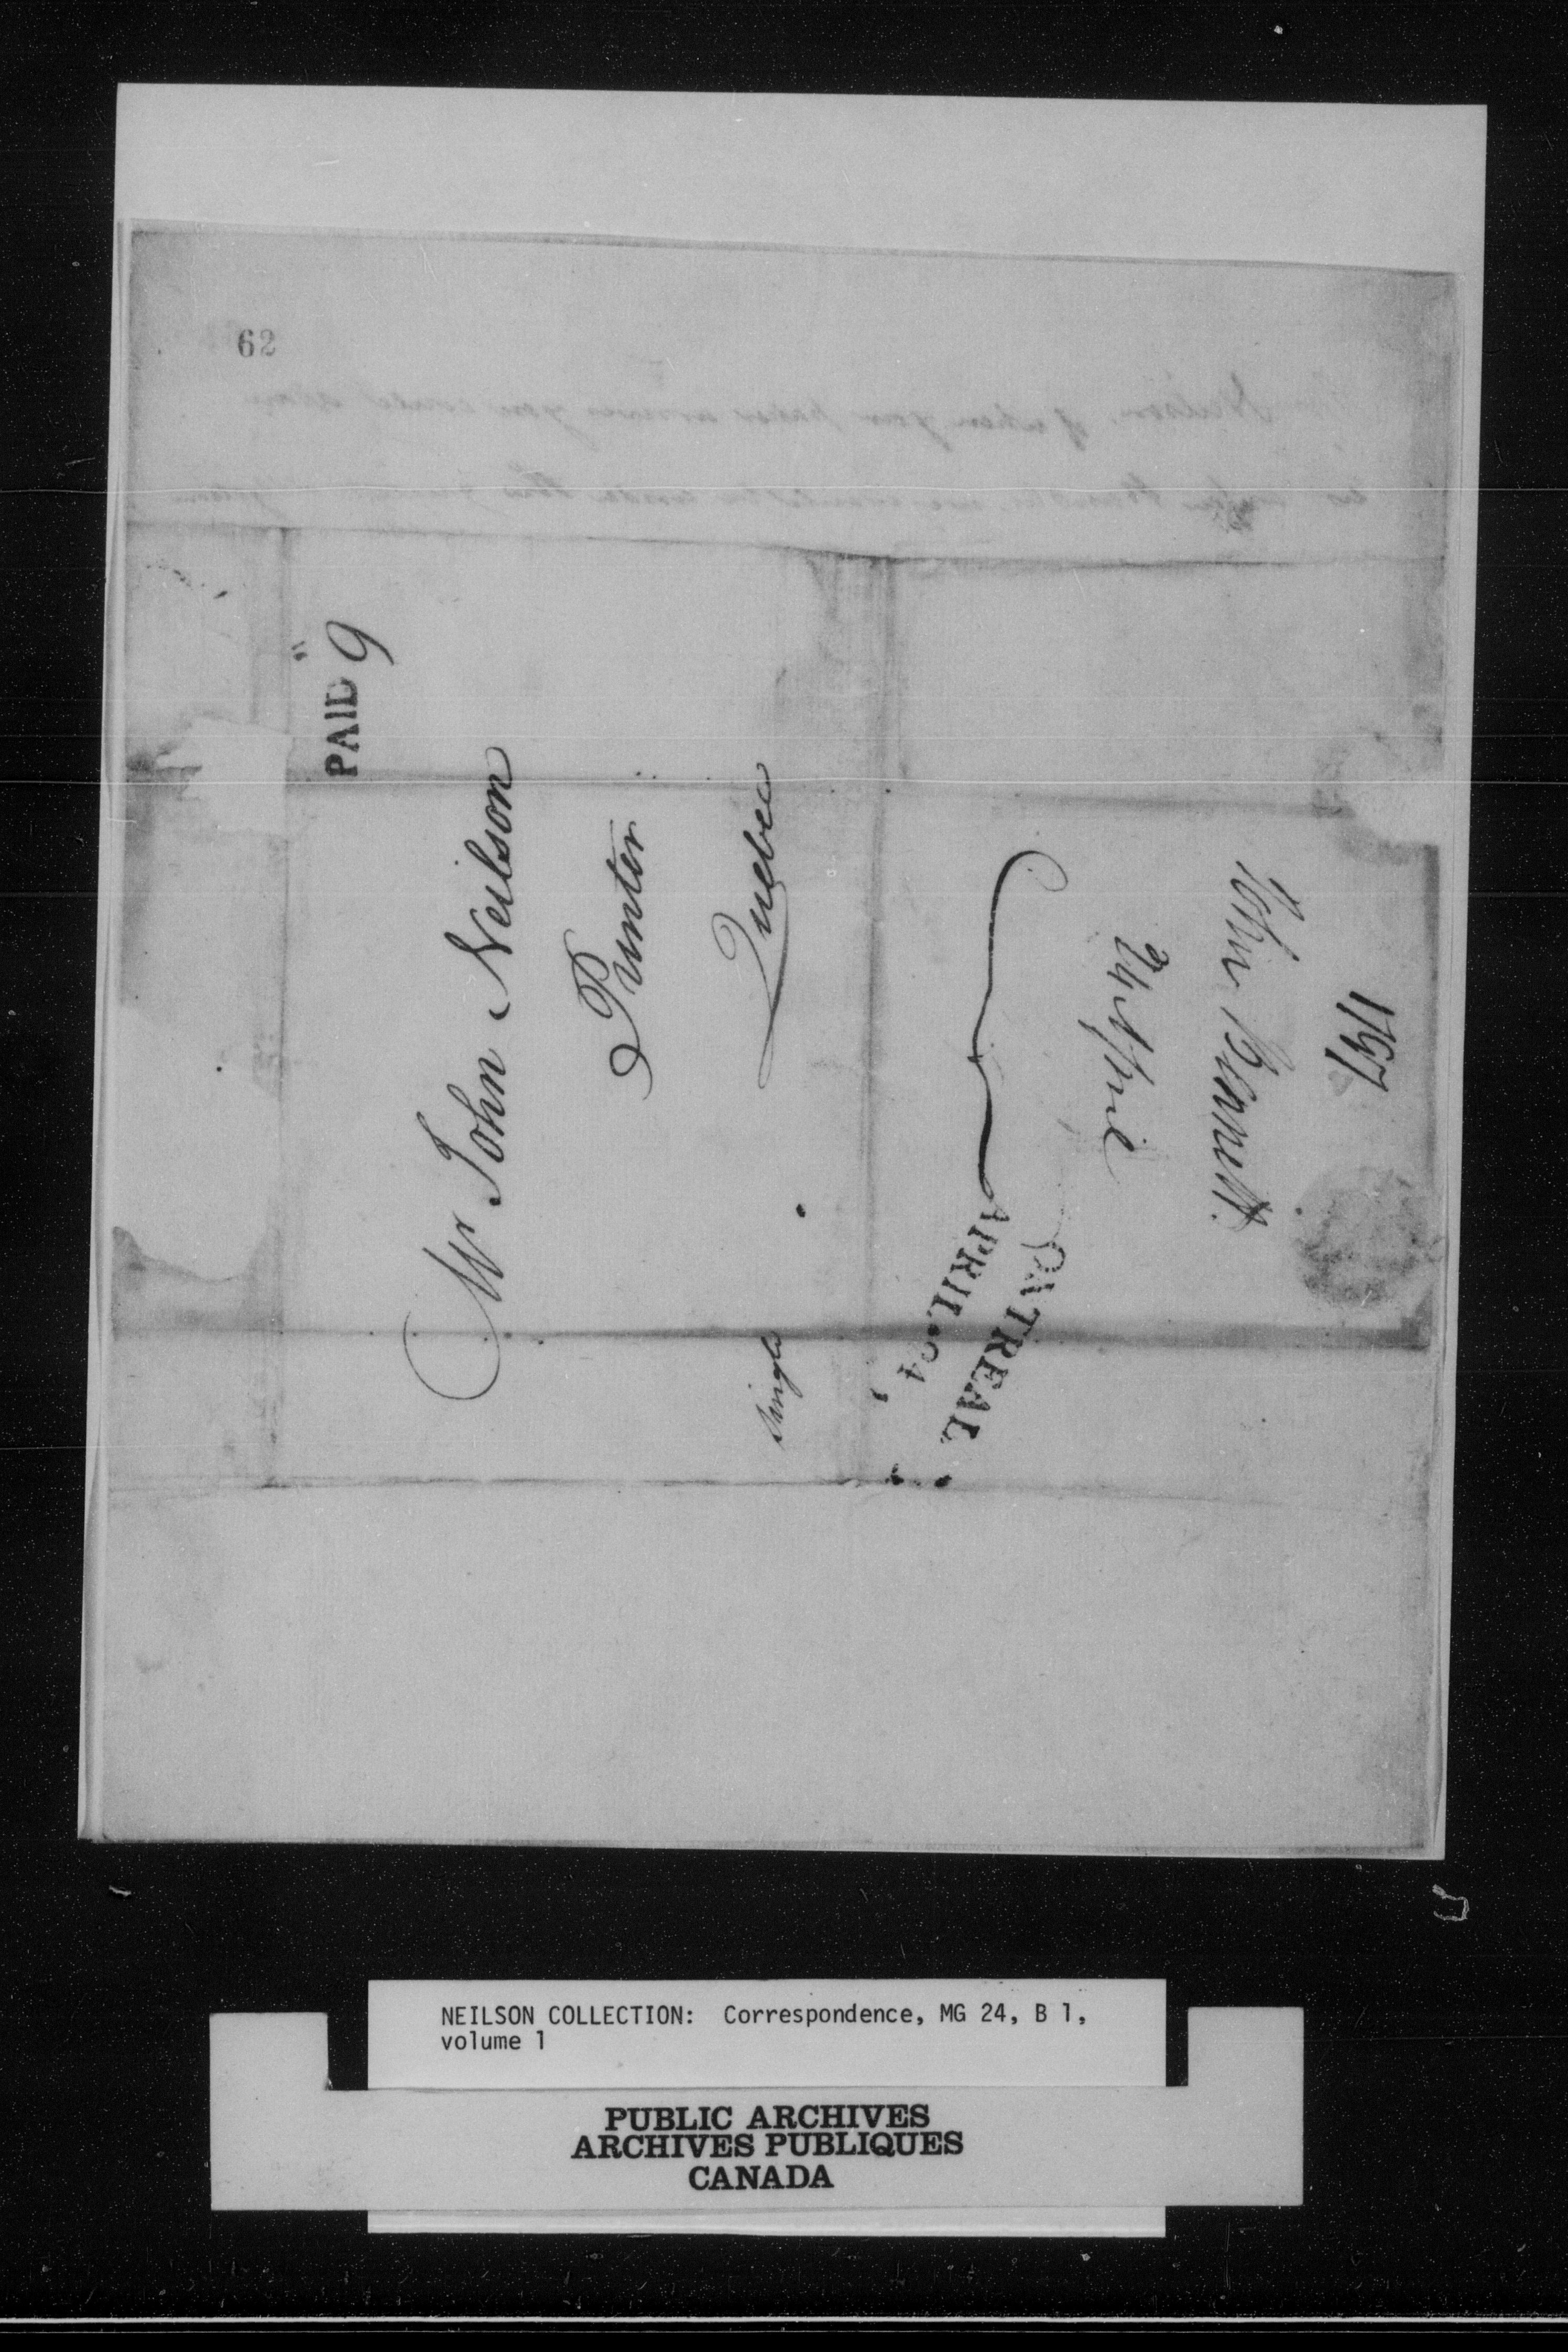 62
PAID 9
Mr John Neilson
Printer
Quebec
Single
1797
John Bennett
24 April
MONTREAL
APRIL 24
NEILSON COLLECTION: Correspondence, MG 24, B 1,
volume 1
PUBLIC ARCHIVES
ARCHIVES PUBLIQUES
CANADA